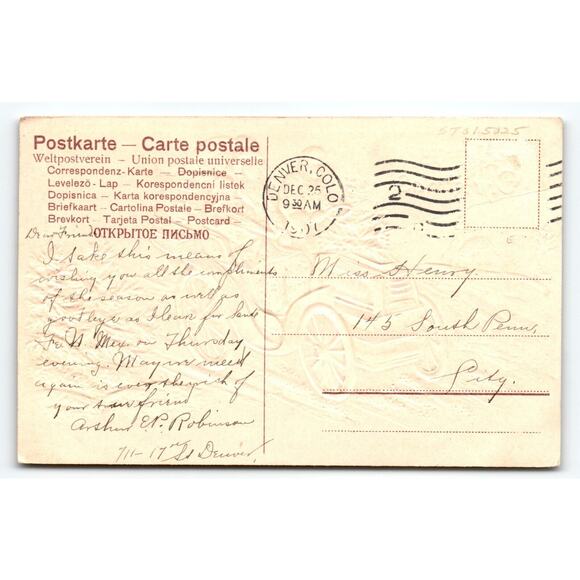 Postkarte — Carte postale
Weltpostverein — Union postale universelle
Correspondenz-Karte — Dopisnice -
Levelező-Lap — Korespondencni listek
Dopisnica — Karta korespondencyjna
Briefkaart - Cartolina Postale - Brefkort
Brevkort - Tarjeta Postal - Postcard —
ОТКРЫТОЕ ПИСЬМО
Dear Friend
I take this means of
wishing you all the compliments
of the season as well as
goodbye as I leave for Santa
Fe N. Mex on Thursday
evening. May we meet
again is ever the wish of
your true friend
Arthur E.P. Robinson
711-17th St Denver,
DENVER, COLO.
DEC 25
9 30 AM
1907
2
ST015025
Miss Henry
145 South Penn,
City.